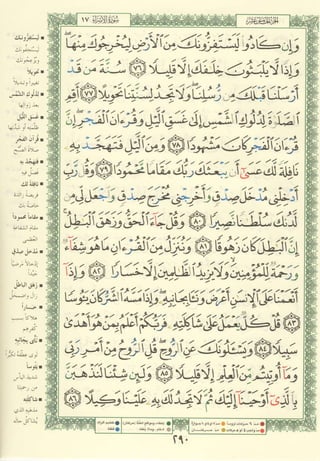 سورة الإسراء ١٧
وَإِن كَادُوا۟ لَيَسْتَفِزُّونَكَ مِنَ ٱلْأَرْضِ لِيُخْرِجُوكَ مِنْهَا ۖ
وَإِذًا لَّا يَلْبَثُونَ خِلَٰفَكَ إِلَّا قَلِيلًا ٧٦ سُنَّةَ مَن قَدْ
أَرْسَلْنَا قَبْلَكَ مِن رُّسُلِنَا ۖ وَلَا تَجِدُ لِسُنَّتِنَا تَحْوِيلًا ٧٧ أَقِمِ
ٱلصَّلَوٰةَ لِدُلُوكِ ٱلشَّمْسِ إِلَىٰ غَسَقِ ٱلَّيْلِ وَقُرْءَانَ ٱلْفَجْرِ ۖ إِنَّ
قُرْءَانَ ٱلْفَجْرِ كَانَ مَشْهُودًا ٧٨ وَمِنَ ٱلَّيْلِ فَتَهَجَّدْ بِهِۦ
نَافِلَةً لَّكَ عَسَىٰٓ أَن يَبْعَثَكَ رَبُّكَ مَقَامًا مَّحْمُودًا ٧٩ وَقُل رَّبِّ
أَدْخِلْنِى مُدْخَلَ صِدْقٍ وَأَخْرِجْنِى مُخْرَجَ صِدْقٍ وَٱجْعَل لِّى مِن
لَّدُنكَ سُلْطَٰنًا نَّصِيرًا ٨٠ وَقُلْ جَآءَ ٱلْحَقُّ وَزَهَقَ ٱلْبَٰطِلُ ۚ
إِنَّ ٱلْبَٰطِلَ كَانَ زَهُوقًا ٨١ وَنُنَزِّلُ مِنَ ٱلْقُرْءَانِ مَا هُوَ شِفَآءٌ
وَرَحْمَةٌ لِّلْمُؤْمِنِينَ ۙ وَلَا يَزِيدُ ٱلظَّٰلِمِينَ إِلَّا خَسَارًا ٨٢ وَإِذَآ
أَنْعَمْنَا عَلَى ٱلْإِنسَٰنِ أَعْرَضَ وَنَـَٔا بِجَانِبِهِۦ ۖ وَإِذَا مَسَّهُ ٱلشَّرُّ كَانَ يَـُٔوسًا
٨٣ قُلْ كُلٌّ يَعْمَلُ عَلَىٰ شَاكِلَتِهِۦ فَرَبُّكُمْ أَعْلَمُ بِمَنْ هُوَ أَهْدَىٰ
سَبِيلًا ٨٤ وَيَسْـَٔلُونَكَ عَنِ ٱلرُّوحِ ۖ قُلِ ٱلرُّوحُ مِنْ أَمْرِ رَبِّى
وَمَآ أُوتِيتُم مِّنَ ٱلْعِلْمِ إِلَّا قَلِيلًا ٨٥ وَلَئِن شِئْنَا لَنَذْهَبَنَّ
بِٱلَّذِىٓ أَوْحَيْنَآ إِلَيْكَ ثُمَّ لَا تَجِدُ لَكَ بِهِۦ عَلَيْنَا وَكِيلًا ٨٦
٢٩٠
ليستفزونك
تحويلا
لدلوك الشمس
غسق الليل
قرآن الفجر
فتهجد به
نافلة لك
مقاما محمودا
مدخل صدق
زهق الباطل
خسارا
نأى بجانبه
يئوسا
شاكلته